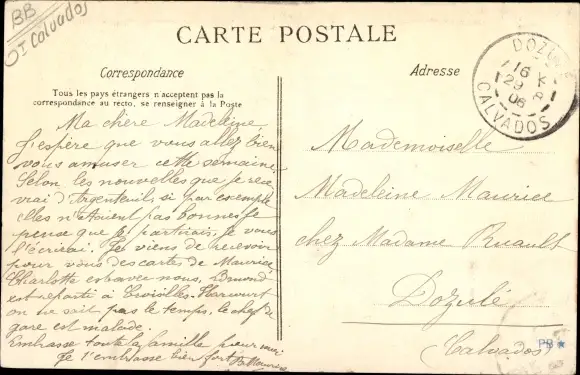 BB
OI Calvados
CARTE POSTALE
Correspondance
Tous les pays étrangers n'acceptent pas la
correspondance au recto, se renseigner à la Poste
Ma chère Madeleine
J'espère que vous allez bien
vous amuser cette semaine.
Selon les nouvelles que je rece
vrai d'Argenteuil, si par exemple
elles n'étaient pas bonnes je
pense que je partirais, je vous
l'écrirai. Je viens de recevoir
pour vous des cartes de Maurice,
Charlotte est avec nous,
est reparti à Croisilles-Harcourt
on ne sait pas le temps, le chef de
gare est malade.
Embrasse toute la famille pour moi
Je t'embrasse bien fort
Adresse
Mademoiselle
Madeleine Maurice
chez Madame Ruault
Dozulé
(Calvados)
DOZULÉ
16 K
29
06
CALVADOS
PB